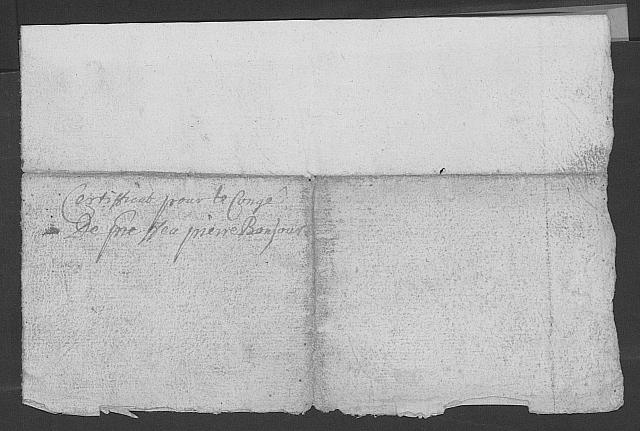 Certifficat pour le Conge
De pierre Bonjour